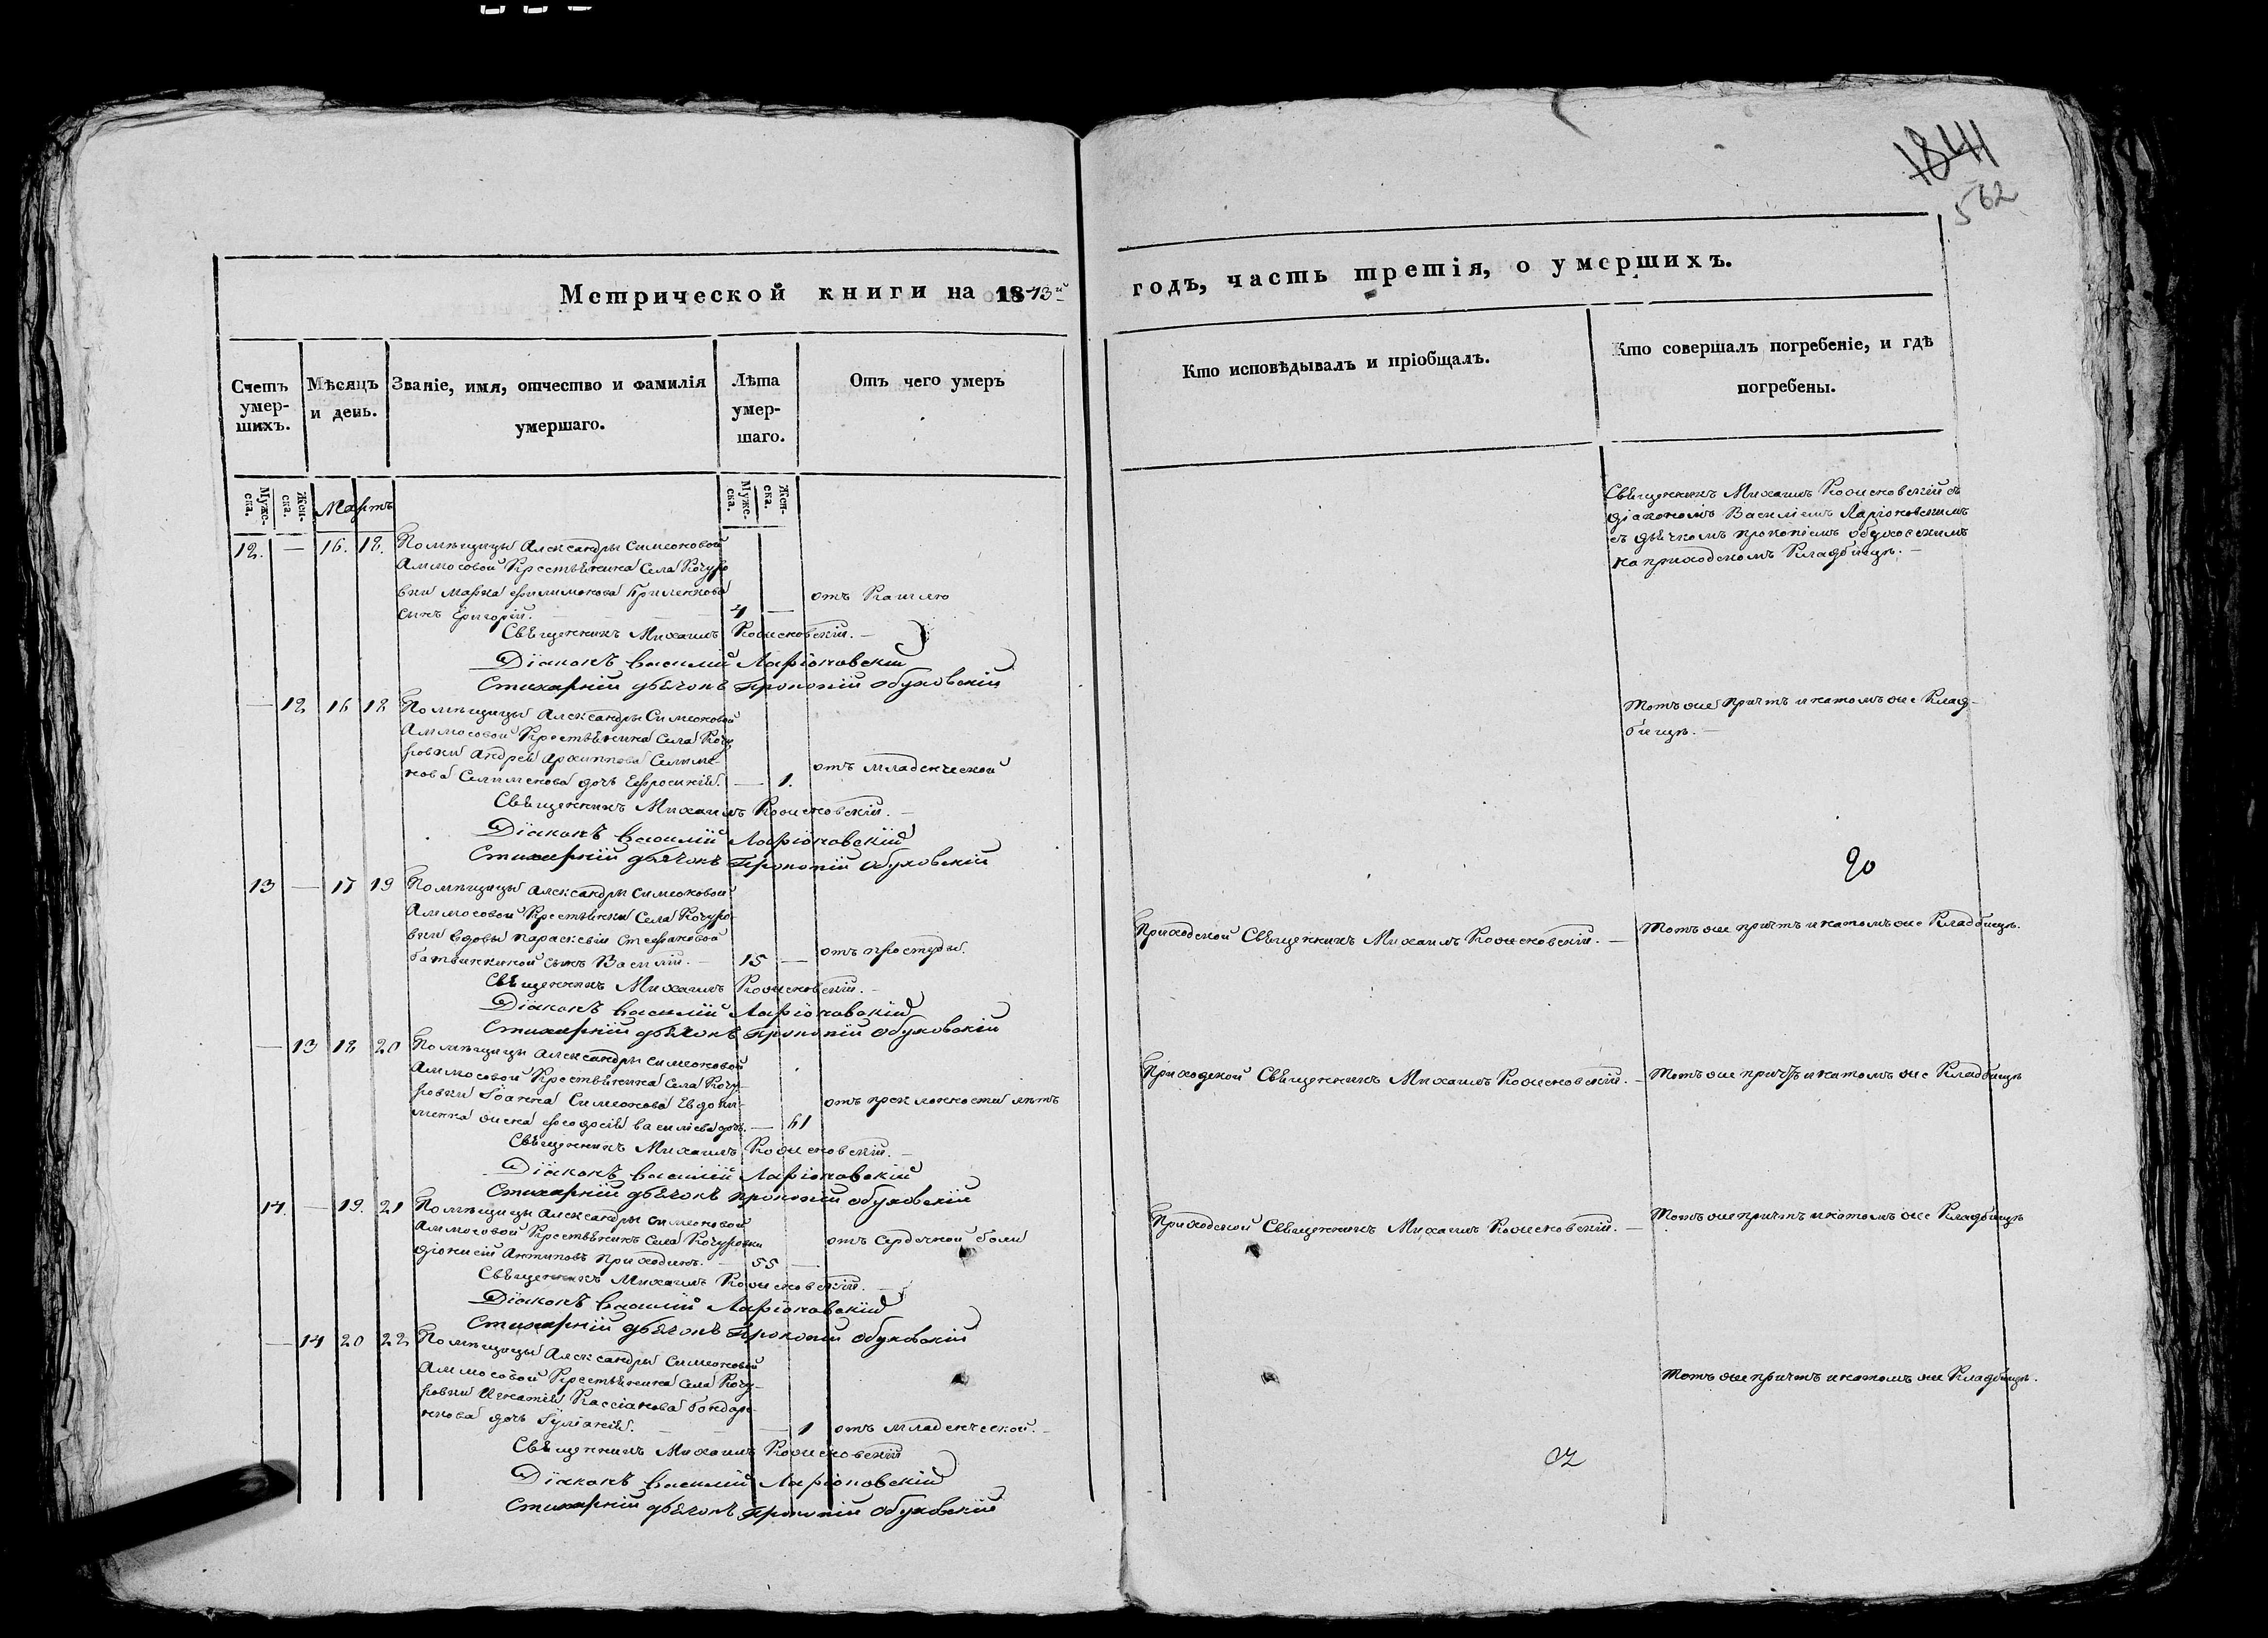 1841
562
Метрической книги на 1843й
годъ, часть третія, о умершихъ.
Счетъ умер-шихъ.
Мѣсяцъ и день.
Званіе, имя, отчество и фамилія умершаго.
Лѣта умер-шаго.
Отъ чего умеръ
Кто исповѣдывалъ и пріобщалъ.
Кто совершалъ погребеніе, и гдѣ погребены.
Муже-ска.
Жен-ска.
Мартъ
Муже-ска.
Жен-ска.
12. — 16. 18.
Помѣщицы Александры Симеоновой
Аммосовой Крестьянина Села Кочуро
вки Марка Филимонова
сынъ Григорій. — 4 —
отъ Кашлю
Священникъ Михаилъ
Діаконъ Василій Ларіоновскій
Стихарный дьячокъ Прокопій Обуховскій
Священникъ Михаилъ съ
діакономъ Василіемъ Ларіоновскимъ
съ дьячкомъ Прокопіемъ Обуховскимъ
на приходскомъ Кладбищѣ. —
— 12 16 18
Помѣщицы Александры Симеоновой
Аммосовой Крестьянина Села Кочу
ровки Андрея Архиппова
дочь Евфросинія. — 1.
отъ младенческой
Священникъ Михаилъ
Діаконъ Василій Ларіоновскій
Стихарный дьячокъ Прокопій Обуховскій
Тотъ же Причтъ и на томъ же Клад-
бищѣ. —
13 — 17 19
Помѣщицы Александры Симеоновой
Аммосовой Крестьянки Села Кочуро
вки вдовы Параскевіи Стефановой
сынъ Василій. — 15 —
отъ простуды.
Священникъ Михаилъ
Діаконъ Василій Ларіоновскій
Стихарный дьячокъ Прокопій Обуховскій
Приходской Священникъ Михаилъ
Тотъ же причтъ и на томъ же Кладбищѣ.
— 13 18 20
Помѣщицы Александры Симеоновой
Аммосовой Крестьянина Села Кочу-
ровки Іоанна Симеонова Евдоки-
менка жена Феодосія Васильева дочь. — 61
отъ преклонности лѣтъ
Священникъ Михаилъ
Діаконъ Василій Ларіоновскій
Стихарный дьячокъ Прокопій Обуховскій
Приходской Священникъ Михаилъ
Тотъ же причтъ и на томъ же Кладбищѣ
14. — 19. 21
Помѣщицы Александры Симеоновой
Аммосовой Крестьянинъ Села Кочуровки
Діонисій Антиповъ Приходинъ. — 55 —
отъ Сердечной боли
Священникъ Михаилъ
Діаконъ Василій Ларіоновскій
Стихарный дьячокъ Прокопій Обуховскій
Приходской Священникъ Михаилъ
Тотъ же причтъ и на томъ же Кладбищѣ
— 14 20 22
Помѣщицы Александры Симеоновой
Аммосовой Крестьянина Села Кочу-
ровки Игнатія Кассіанова Бондаре-
нкова дочь Іуліанія. — 1
отъ младенческой. —
Священникъ Михаилъ
Діаконъ Василій Ларіоновскій
Стихарный дьячокъ Прокопій Обуховскій
Тотъ же причтъ и на томъ же Кладбищѣ.